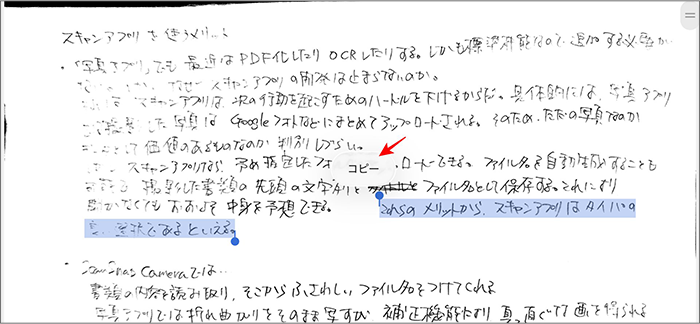 スキャンアプリを使うメリット
・「写真アプリ」でも最近はPDF化したりOCRしたりする。しかも標準機能なので追加する必要が
スキャンアプリの開発は止まらないのか。
スキャンアプリは、次の行動を起こすためのハードルを下げるからだ。具体的には、写真アプリ
写真はGoogleフォトなどにまとめてアップロードされる。そのため、ただの写真なのか
価値のあるものなのか判別しづらい。
スキャンアプリなら、予め指定したフォ コピー ロードできる。ファイル名を自動生成することも
撮影した書類の先頭の文字列を ファイル名として保存する。それにより
なくてもおおよそ中身を予想できる。 これらのメリットから、スキャンアプリはタイパの
選択であるといえる。
・ScanSnap Cameraでは…
書類の内容を読み取り、そこからふさわしいファイル名をつけてくれる
写真アプリでは折れ曲がりをそのまま写すが、補正機能により真っ直ぐで